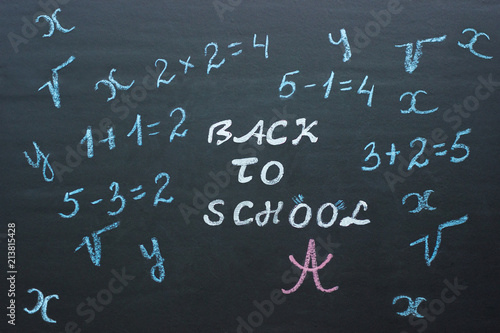 x
√ x 2×2=4 y √ x
5-1=4 x
1+1=2 BACK
y TO 3+2=5
5-3=2 SCHOOL x
√ y A √
x x
Adobe Stock | #213815428